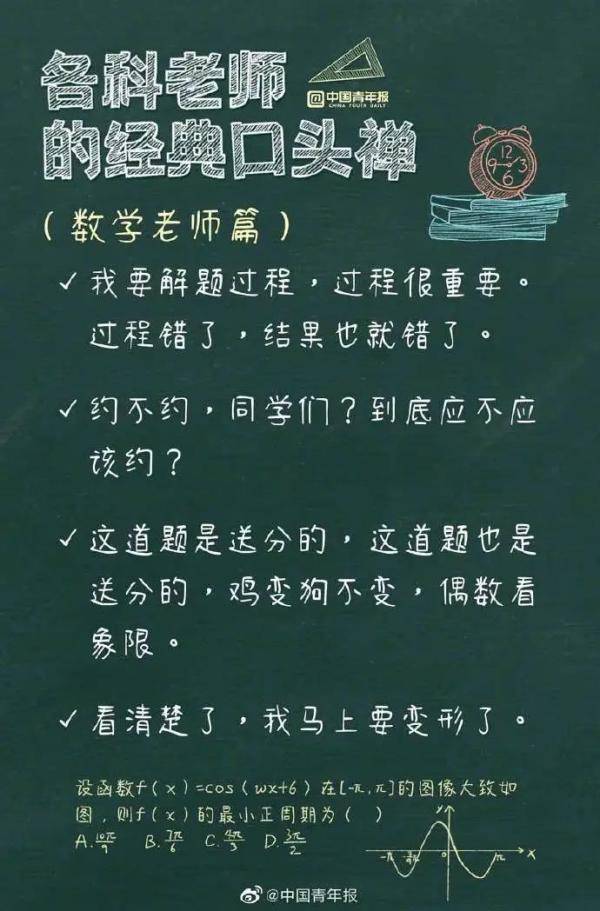 各科老师
@中国青年报
CHINA YOUTH DAILY
的经典口头禅
12
9 3
6
(数学老师篇)
✓ 我要解题过程，过程很重要。
过程错了，结果也就错了。
✓ 约不约，同学们？到底应不应
该约？
✓ 这道题是送分的，这道题也是
送分的，鸡变狗不变，偶数看
象限。
✓ 看清楚了，我马上要变形了。
设函数f(x)=cos(wx+6)在[-π,π]的图像大致如
图，则f(x)的最小正周期为( )
A.10π/9 B.7π/6 C.4π/3 D.3π/2
y
-π 0 π x
@中国青年报